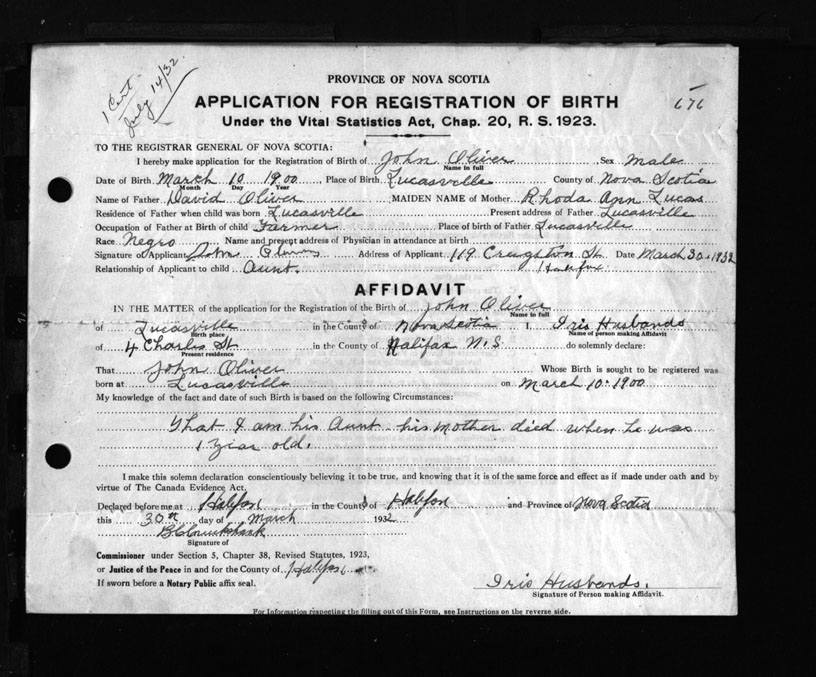 1 Cert
July 14/32
676
PROVINCE OF NOVA SCOTIA
APPLICATION FOR REGISTRATION OF BIRTH
Under the Vital Statistics Act, Chap. 20, R. S. 1923.
TO THE REGISTRAR GENERAL OF NOVA SCOTIA:
I hereby make application for the Registration of Birth of John Oliver Sex Male
Name in full
Date of Birth March 10 1900 Place of Birth Lucasville County of Nova Scotia
Month Day Year
Name of Father David Oliver MAIDEN NAME of Mother Rhoda Ann Lucas
Residence of Father when child was born Lucasville Present address of Father Lucasville
Occupation of Father at Birth of child Farmer Place of birth of Father Lucasville
Race Negro Name and present address of Physician in attendance at birth
Signature of Applicant John Address of Applicant 119 Creighton St. Date March 30, 1932
Relationship of Applicant to child Aunt. Halifax
AFFIDAVIT
IN THE MATTER of the application for the Registration of the Birth of John Oliver
Name in full
of Lucasville in the County of Nova Scotia I, Iris Husbands
Birth place Name of person making Affidavit
of 4 Charles St. in the County of Halifax N.S. do solemnly declare:
Present residence
That John Oliver Whose Birth is sought to be registered was
born at Lucasville on March 10. 1900
My knowledge of the fact and date of such Birth is based on the following Circumstances:
That I am his Aunt his mother died when he was
1 year old.
I make this solemn declaration conscientiously believing it to be true, and knowing that it is of the same force and effect as if made under oath and by
virtue of The Canada Evidence Act.
Declared before me at Halifax in the County of Halifax and Province of Nova Scotia
this 30th day of March 1932
Signature of
Commissioner under Section 5, Chapter 38, Revised Statutes, 1923,
or Justice of the Peace in and for the County of Halifax
If sworn before a Notary Public affix seal.
Iris Husbands.
Signature of Person making Affidavit.
For Information respecting the filling out of this Form, see Instructions on the reverse side.